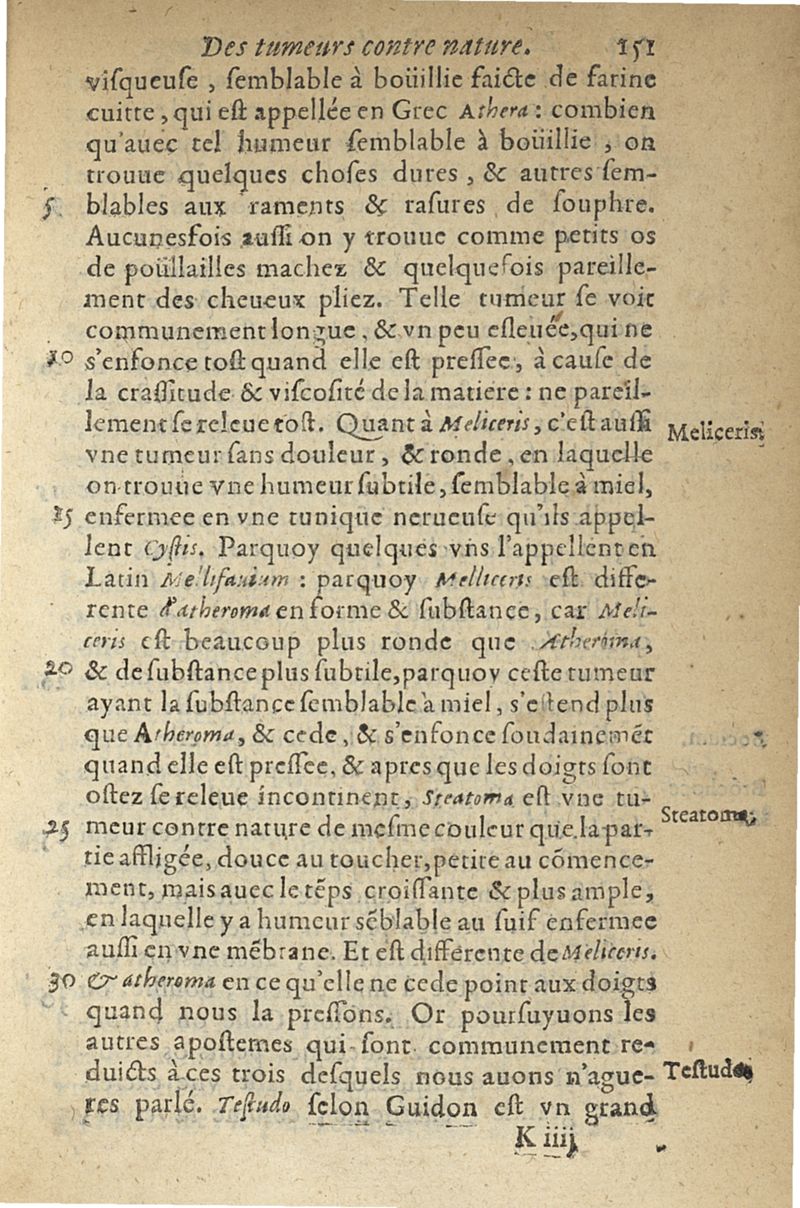 Des tumeurs contre nature. 151
viſqueuſe, ſemblable à boüillie faicte de farine
cuitte, qui eſt appellée en Grec Athera : combien
qu'auec tel humeur ſemblable à boüillie, on
trouue quelques choſes dures, & autres ſem-
5 blables aux raments & raſures de ſouphre.
Aucunesfois auſſi on y trouue comme petits os
de poüllailles machez & quelquefois pareille-
ment des cheueux pliez. Telle tumeur ſe voit
communement longue, & vn peu eſleuée, qui ne
10 s'enfonce toſt quand elle eſt preſſee, à cauſe de
la craſſitude & viſcoſité de la matiere : ne pareil-
lement ſe releue toſt. Quant à Meliceris, c'eſt auſſi Meliceris
vne tumeur ſans douleur, & ronde, en laquelle
on trouue vne humeur ſubtile, ſemblable à miel,
15 enfermee en vne tunique nerueuſe qu'ils appel-
lent Cyſtis. Parquoy quelques vns l'appellent en
Latin Melliſauium : parquoy Melliceris eſt diffe-
rente d'atheroma en forme & ſubſtance, car Meli-
ceris eſt beaucoup plus ronde que Atheroma,
20 & de ſubſtance plus ſubtile, parquoy ceſte tumeur
ayant la ſubſtance ſemblable à miel, s'eſtend plus
que Atheroma, & cede, & s'enfonce ſoudainemẽt
quand elle eſt preſſee, & apres que les doigts ſont
oſtez ſe releue incontinent, Steatoma eſt vne tu-
25 meur contre nature de meſme couleur que la par- Steatoma,
tie affligée, douce au toucher, petite au cõmence-
ment, mais auec le tẽps croiſſante & plus ample,
en laquelle y a humeur sẽblable au ſuif enfermee
auſſi en vne mẽbrane. Et eſt differente de Meliceris.
30 & atheroma en ce qu'elle ne cede point aux doigts
quand nous la preſſons. Or pourſuyuons les
autres apoſtemes qui ſont communement re-
duicts à ces trois deſquels nous auons n'ague- Teſtudo
res parlé. Teſtudo ſelon Guidon eſt vn grand
K iiij